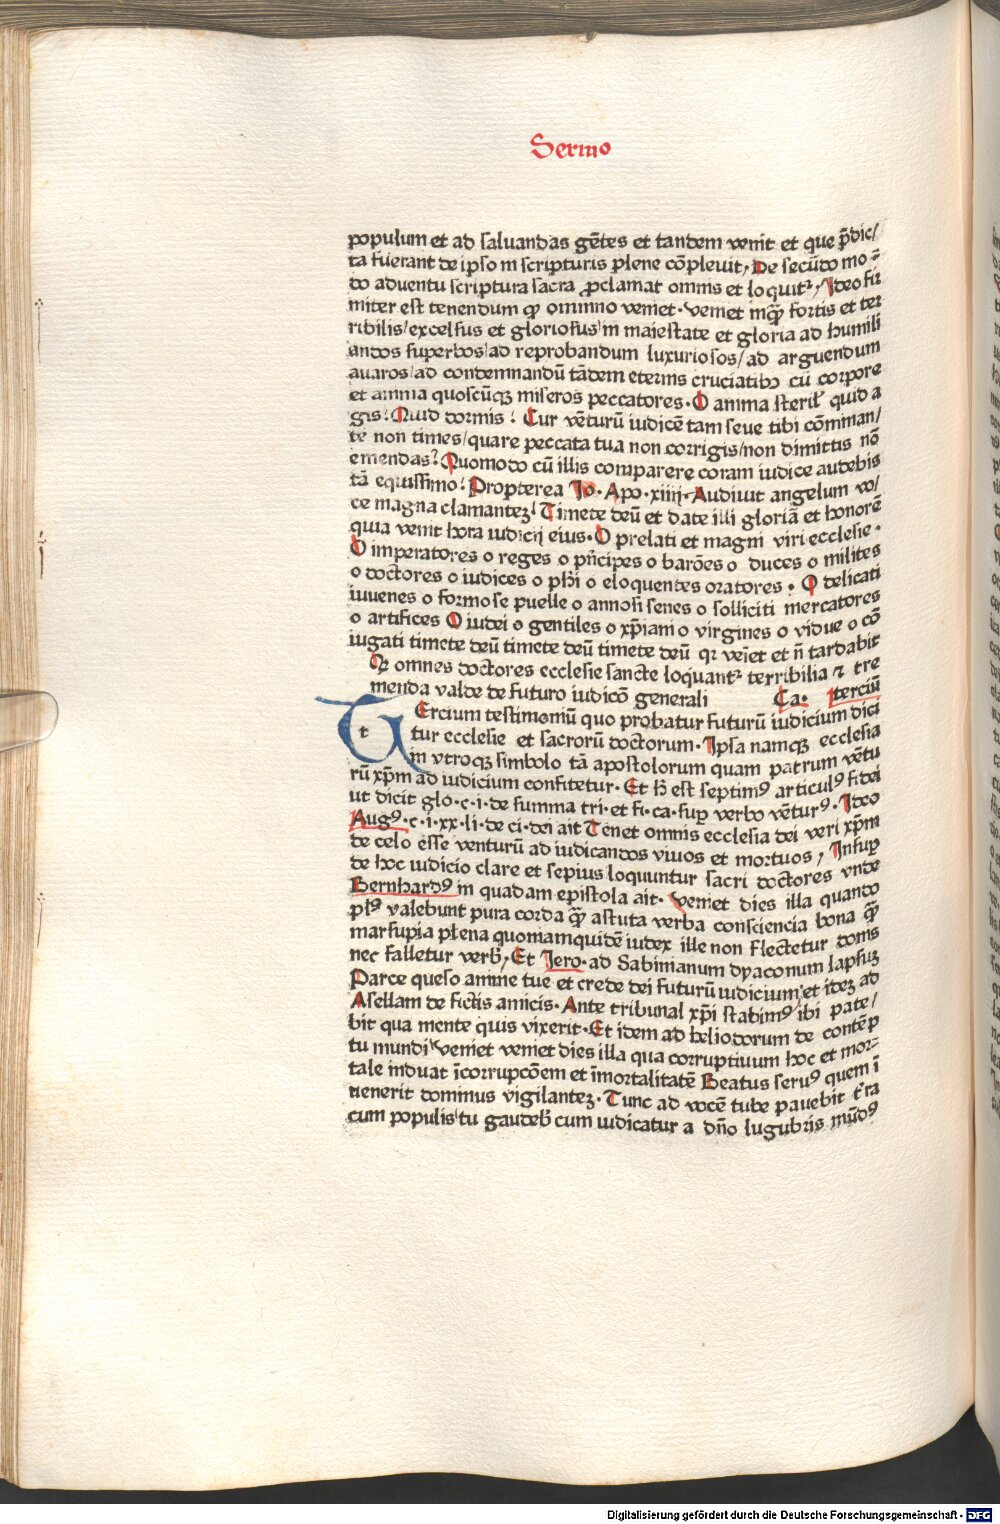 Sermo
populum et ad saluandas gētes et tandem venit et que p̄dic/
ta fuerant de ipso in scripturis plene cōpleuit, De secūdo mo⸗
do aduentu scriptura sacra ꝓclamat omnis et loquitᷣ, Ideo fir
miter est tenendum ꝙ omnino veniet· veniet inqͣꝫ fortis et ter
ribilis/excelsus et gloriosus in maiestate et gloria ad humili
andos superbos/ad reprobandum luxuriosos/ad arguendum
auaros/ad condemnandū tādem eternis cruciatibꝫ cū corpore
et anima quoscūqꝫ miseros peccatores· O anima steril' quid a
gis? Quid dormis? Cur vēturū iudicē tam seue tibi cōminan/
tē non times/quare peccata tua non corrigis/non dimittis nō
emendas? Quomodo cū illis comparere coram iudice audebis
tā equissimo? Propterea Jo· Apo·xiiij· Audiuit angelum vo/
ce magna clamanteꝫ Timete deū et date illi gloriā et honorē
quia venit hora iudicij eius· O prelati et magni viri ecclesie·
O imperatores o reges o pn̄cipes o barōes o duces o milites
o doctores o iudices o ph̄i o eloquentes oratores· O delicati
iuuenes o formose puelle o annosi senes o solliciti mercatores
o artifices O iudei o gentiles o xp̄iani o virgines o vidue o cō
iugati timete deū timete deū timete deū qꝛ veīet et n̄ tardabit
Qꝙ omnes doctores ecclesie sancte loquantᷣ terribilia ⁊ tre
menda valde de futuro iudicō generali Ca· terciū
t Ercium testimoniū quo probatur futurū iudicium dici
tur ecclesie et sacrorū doctorum· Ipsa namqꝫ ecclesia
in vtroqꝫ simbolo tā apostolorum quam patrum vētu
rū xp̄m ad iudicium confitetur· Et h̄ est septimꝰ articulꝰ fidei
ut dicit glo·c·i·de summa tri·et fi·ca·suꝑ verbo vēturꝰ· Ideo
Augꝰ·c·i·xx·li·de ci·dei ait Tenet omnis ecclesia dei veri xp̄m
de celo esse venturū ad iudicandos viuos et mortuos, Insuꝑ
de hoc iudicio clare et sepius loquuntur sacri doctores vnde
Bernhardꝰ in quadam epistola ait· Veniet dies illa quando
plꝰ valebunt pura corda qͣꝫ astuta verba consciencia bona qͣꝫ
marsupia plena quoniamquidē iudex ille non flectetur donis
nec falletur verb', Et Jero· ad Sabinianum dyaconum lapsuꝫ
Parce queso anime tue et crede dei futurū iudicium/et ideꝫ ad
Asellam de fictis amicis· Ante tribunal xp̄i stabimꝰ/ibi pate/
bit qua mente quis vixerit· Et idem ad heliodorum de contēp
tu mundi veniet veniet dies illa qua corruptiuum hoc et mor⸗
tale induat īcorrupcōem et īmortalitatē Beatus seruꝰ quem ī
uenerit dominus vigilanteꝫ· Tunc ad vocē tube pauebit t'ra
cum populis/tu gaudeb' cum iudicatur a dn̄o lugubris mūdꝰ
Digitalisierung gefördert durch die Deutsche Forschungsgemeinschaft - DFG